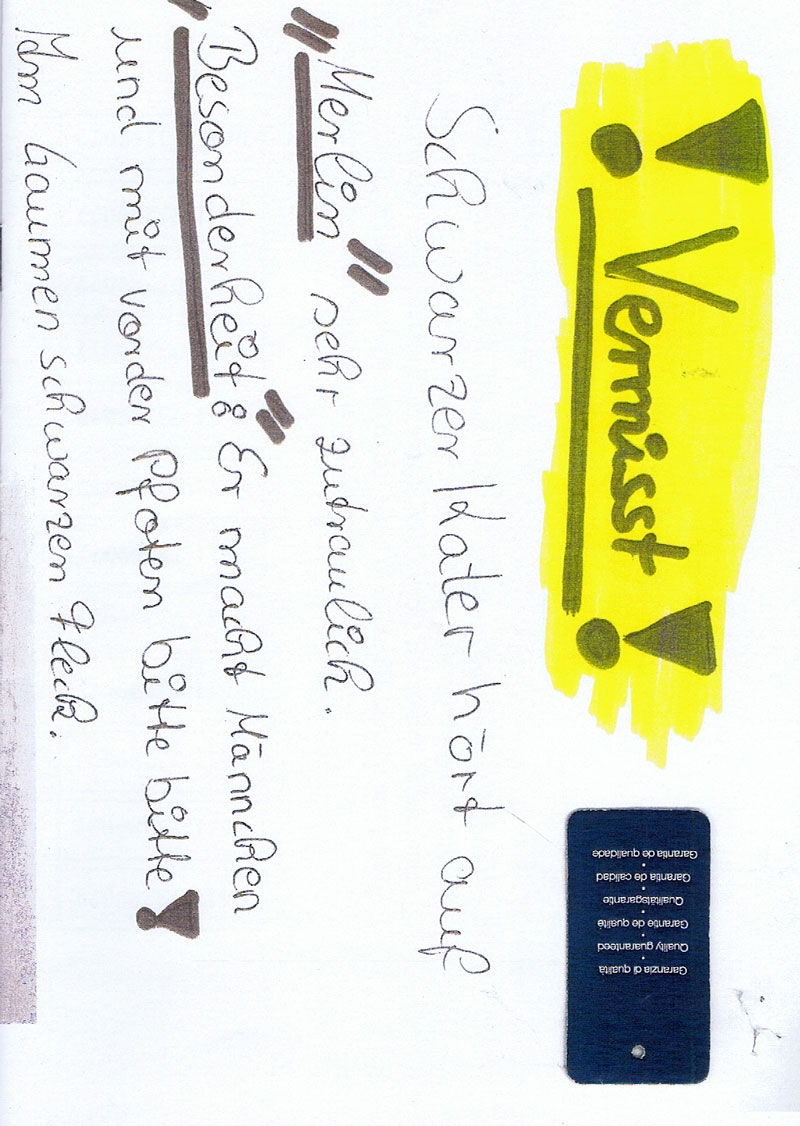 ! Vermisst !
Schwarzer Kater hört auf
"Merlin" sehr zutraulich.
"Besonderheit:" Er macht Männchen
und mit vorder Pfoten bitte bitte!
Im Gaumen schwarzen Fleck.
Garanzia di qualità
Quality guaranteed
Garantie de qualité
Qualitätsgarantie
Garantia de calidad
Garantia de qualidade